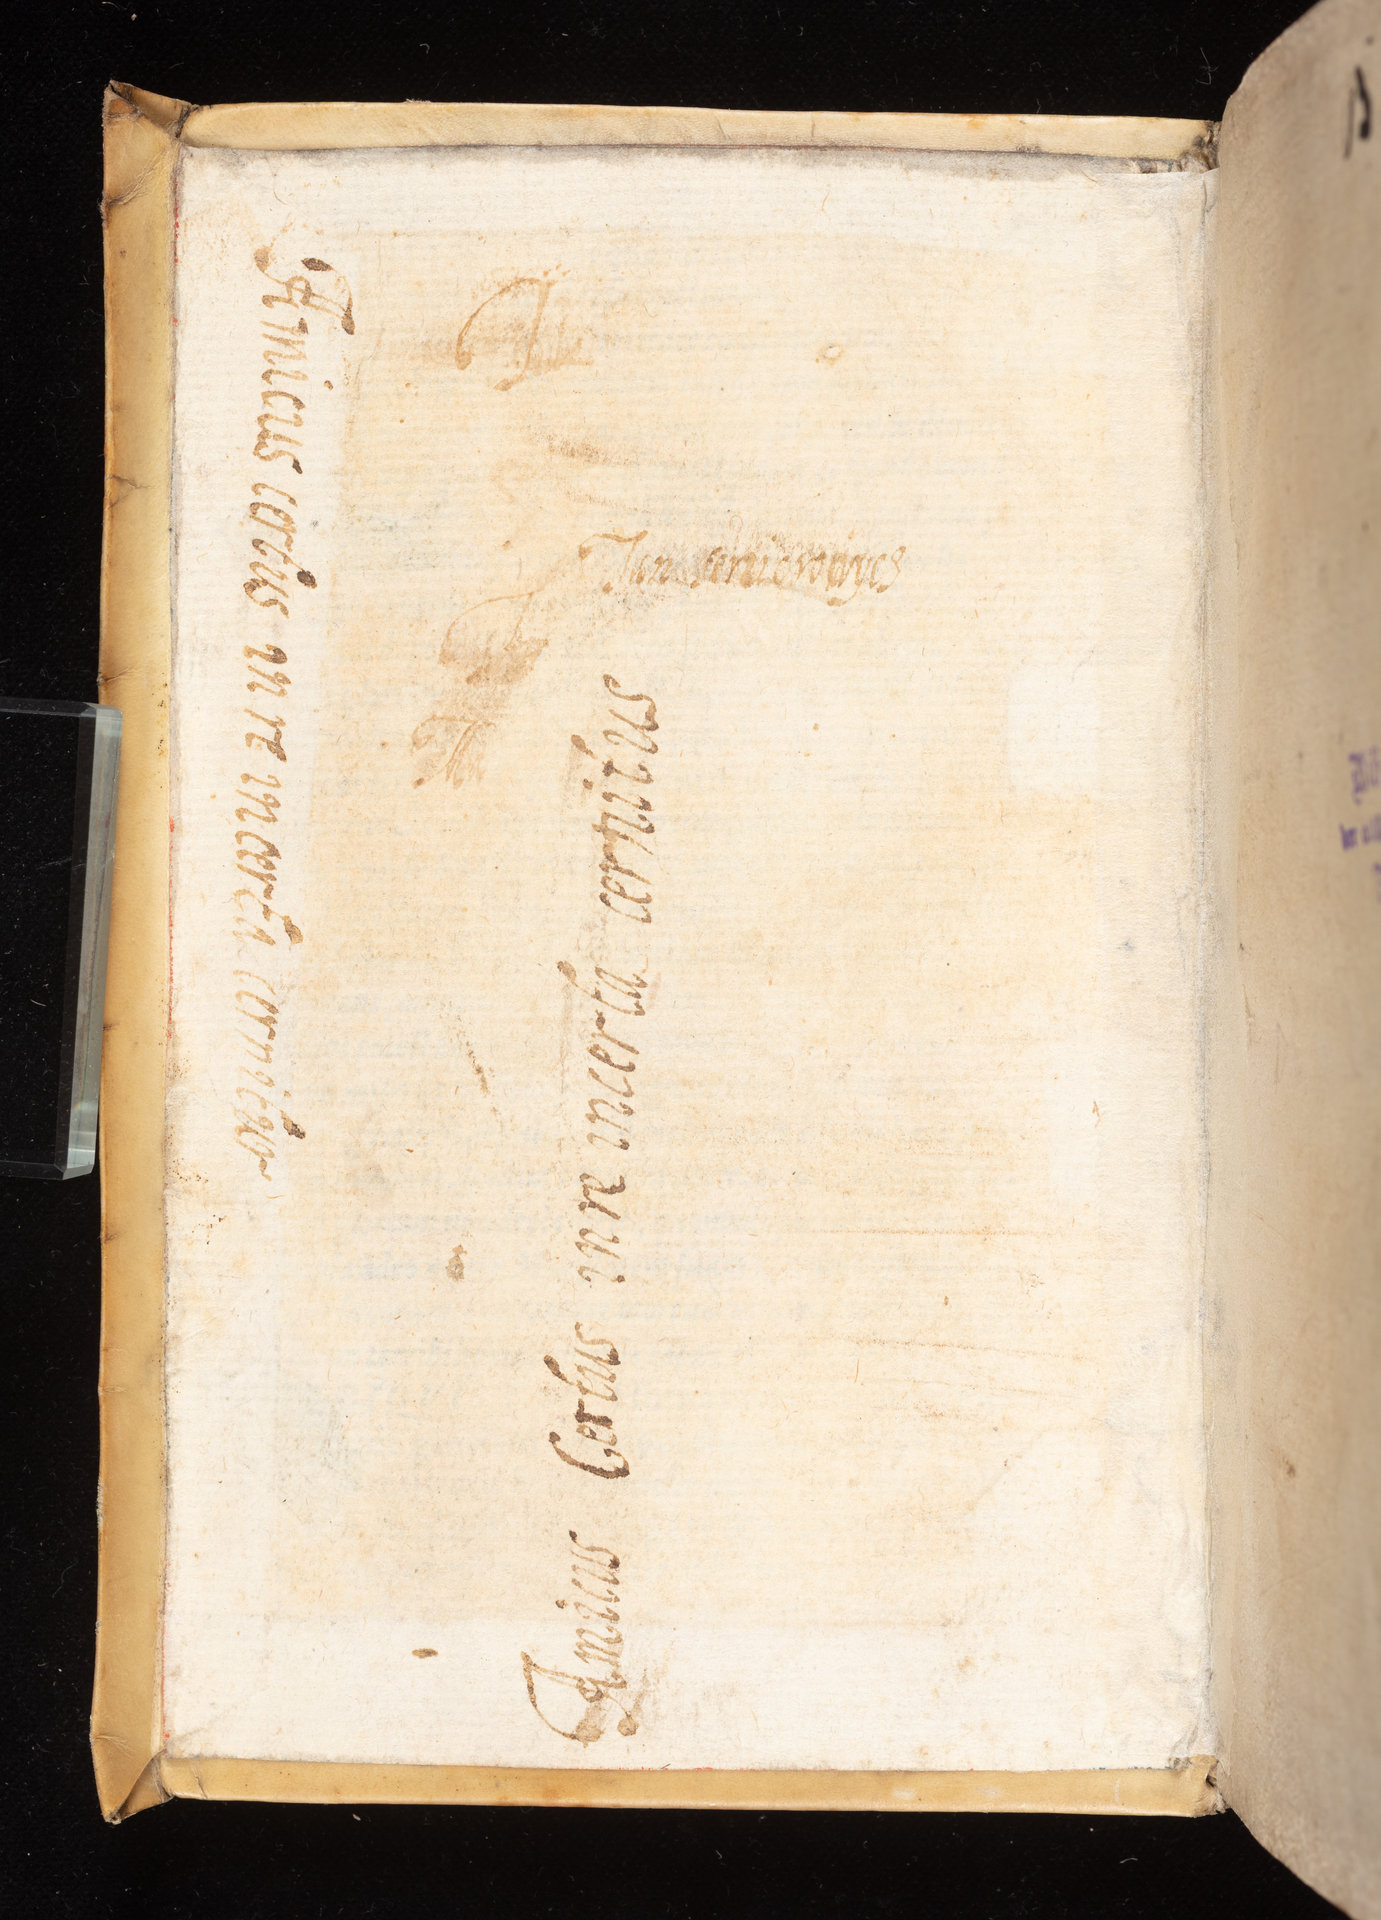 Amicus certus in re incerta cernitur
Jan
Amicus Certus in re incerta cernitus